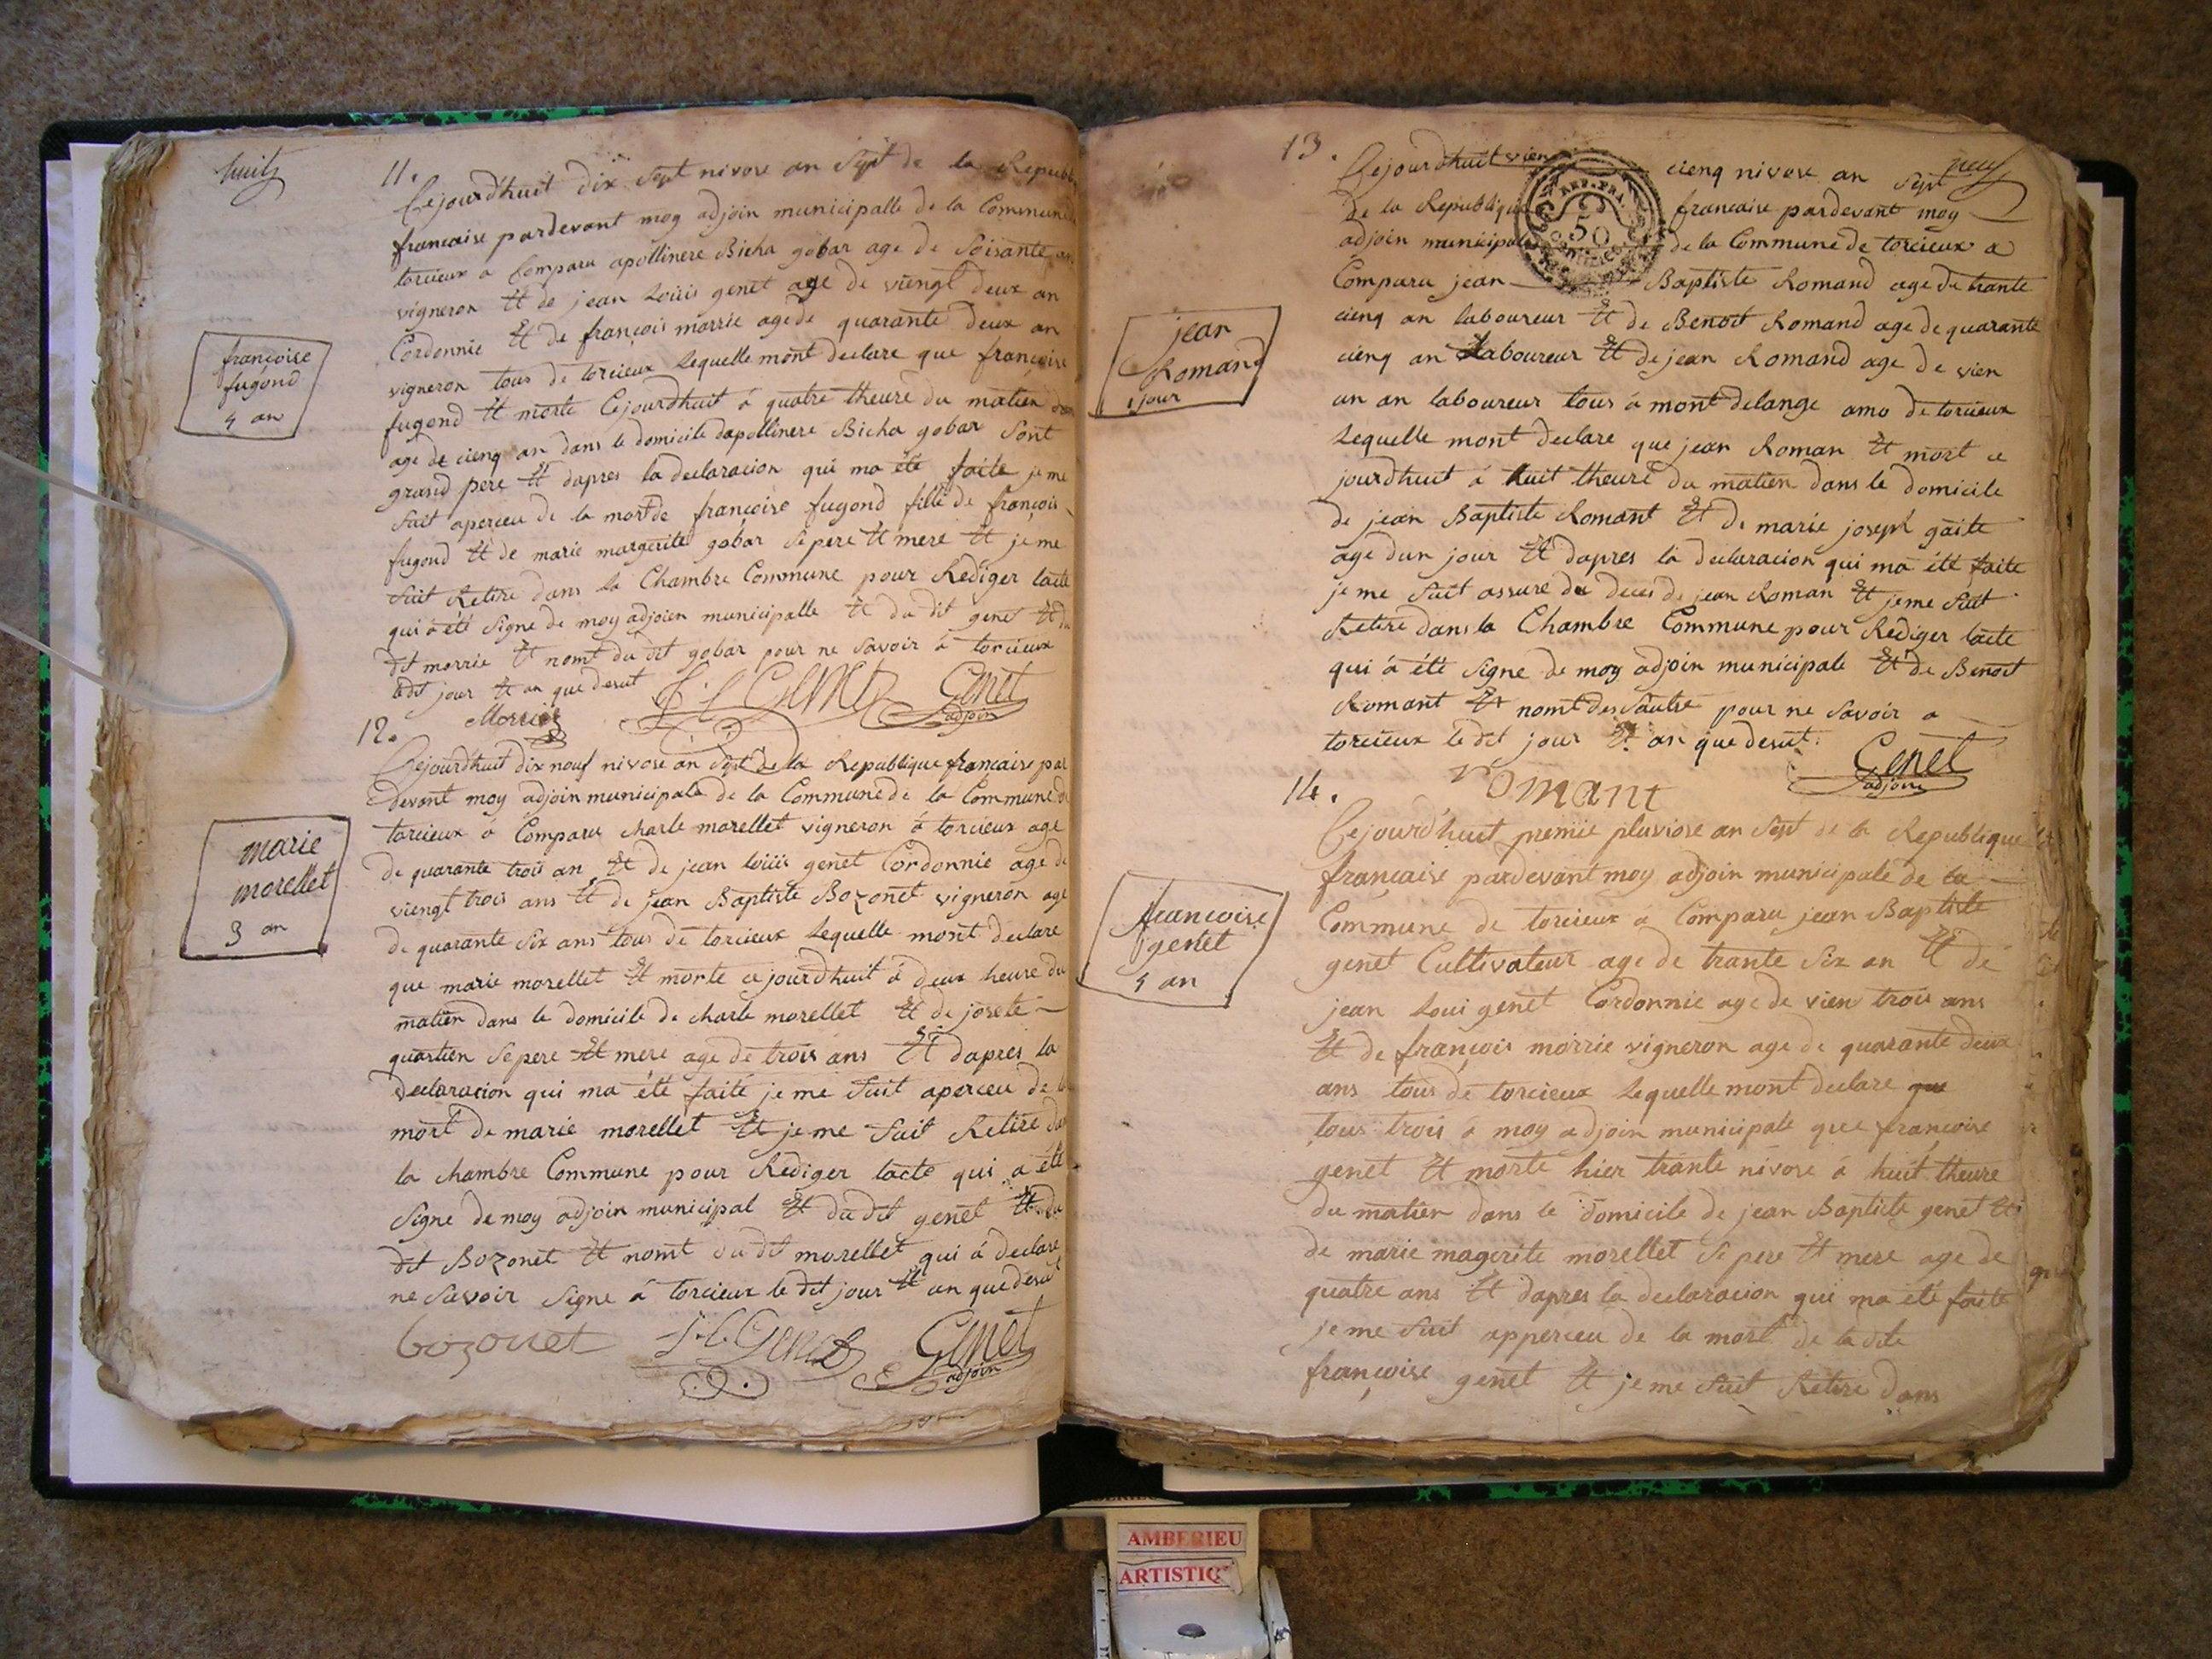 huit
11.
Cejourdhuit dix sept nivose an sept de la Republi
francaise pardevant moy adjoin municipalle de la Commune
torcieux a Comparu apollinere Bicha gobar age de soisante an
vigneron Et de jean Louis genet age de viengt deux an
Cordonnie Et de françois morrie agede quarante deux an
vigneron tous de torcieux Lequelle mont declare que françoise
fugond Et morte Cejourdhuit á quatre theure du matien
age de cienq an dans le domicile dapollinere Bicha gobar sont
grand pere Et dapres la declaracion qui ma été faite je me
suit aperceu de la mort de françoise fugond fille de françois
fugond Et de marie margerite gobar sepere Et mere Et je me
suit Retire dans la Chambre Commune pour Rediger lacte
qui á été signe de moy adjoien municipalle Et du dit genet Et du
dit morrie Et nomt du dit gobar pour ne savoir á torcieux
ledit jour Et an que desut
françoise
fugond
5 an
j. l. Genet
Genet
adjoin
Morrie
12.
Cejourdhuit dix nouf nivose an sept de la Republique francaise par
devant moy adjoin municipale de la Commune de la Commune de
torcieux a Comparu charle morellet vigneron á torcieux age
de quarante trois an Et de jean louis genet Cordonnie age de
viengt trois ans Et de jean Baptiste Bozonet vigneron age
de quarante six ans tous de torcieux Lequelle mont declare
que marie morellet Et morte cejourdhuit á deux heure du
matien dans le domicile de charle morellet Et de josete
quartien sepere Et mere age de trois ans Et dapres la
declaracion qui ma été faite je me suit aperceu de la
mort de marie morellet Et je me suit Retire dan
la chambre Commune pour Rediger lacte qui a été
signe de moy adjoin municipal Et du dit genet Et du
dit Bozonet Et nomt du dit morellet qui á declare
ne savoir signe á torcieux le dit jour Et an que desut
marie
morellet
3 an
bozonet
j. l. Genet
Genet
adjoin
neuf
13.
Cejourdhuit vien cienq nivose an sept
de la Republique francaise pardevant moy
adjoin municipale de la Commune de torcieux a
Comparu jean Baptiste Romand age de trante
cienq an laboureur Et de Benoit Romand age de quarante
cienq an laboureur Et de jean Romand age de vien
un an laboureur tous á mont delange amo de torcieux
Lequelle mont declare que jean Roman Et mort ce
jourdhuit á huit theure du matien dans le domicile
de jean Baptiste Romant Et de marie joseph gaite
age dun jour Et dapres la declaracion qui ma été faite
je me suit assure du deces de jean Roman Et je me suit
Retire dans la Chambre Commune pour Rediger lacte
qui á été signe de moy adjoin municipale Et de Benoit
Romant Et nomt des sautre pour ne savoir a
torcieux le dit jour Et an que desut.
jean
Romand
1 jour
REP. FRA.
50
Genet
adjoin
romant
14.
Cejourdhuit premie pluviose an sept de la Republique
francaise pardevant moy adjoin municipale de la
Commune de torcieux a Comparu jean Baptiste
genet Cultivateur age de trante six an Et de
jean Loui genet Cordonnie age de vien trois ans
Et de françois morrie vigneron age de quarante deux
ans tous de torcieux Lequelle mont declare que
tous trois á moy adjoin municipale que françoise
genet Et morte hier trante nivose á huit theure
du matien dans le domicile de jean Baptiste genet Et
de marie magerite morellet sepere Et mere age de
quatre ans Et dapres la declaracion qui ma été faite
je me suit apperceu de la mort de la dite
françoise genet Et je me suit Retire dans
francoise
genet
5 an
AMBERIEU
ARTISTIQ